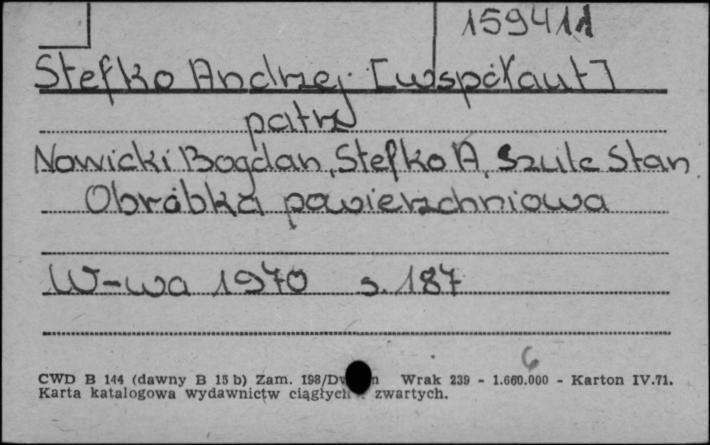 159411
Stefko Andrzej [współaut]
patrz
Nowicki Bogdan, Stefko A, Szulc Stan
Obróbka powierzchniowa
W-wa 1970 s. 187
6
CWD B 144 (dawny B 15 b) Zam. 198/ Wrak 239 - 1.660.000 - Karton IV.71.
Karta katalogowa wydawnictw ciągłych zwartych.